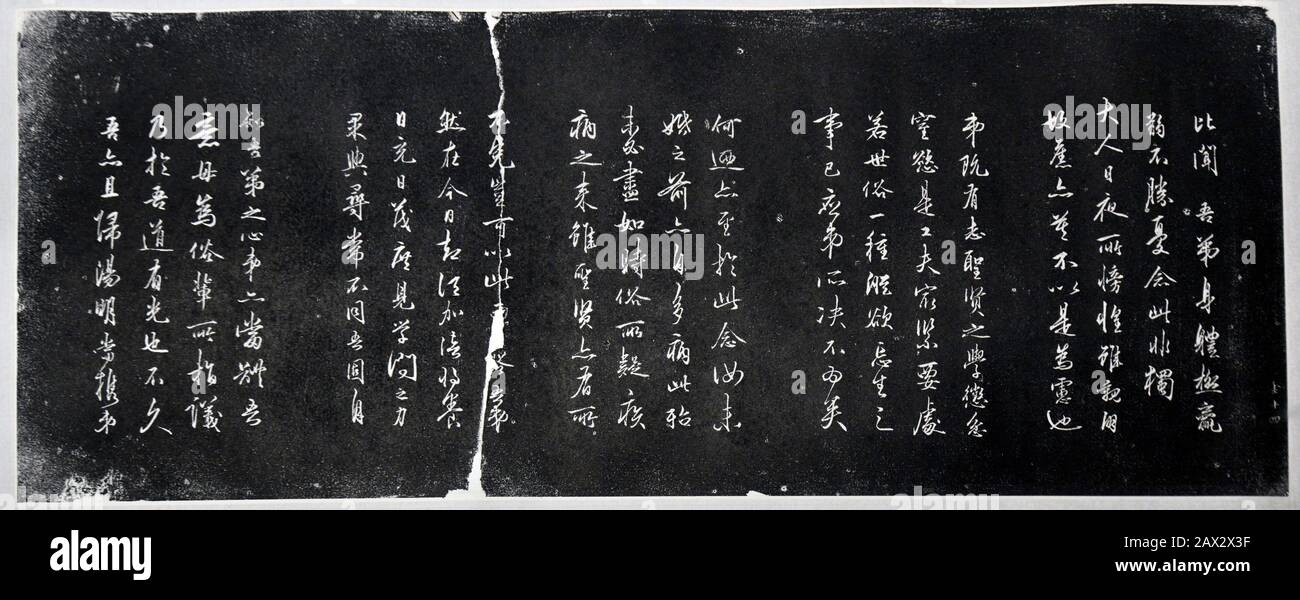 比聞 吾弟身體極羸
弱不勝憂念此非獨
大人日夜所傍惶雖親朋
故舊亦莫不以是為慮也
弟既有志聖賢之學懲忿
窒慾是工夫最緊要處
若世俗一種縱欲忘生之
事已應弟所决不為矣
何迺亦至於此念汝未
婚之前亦自多病此殆
未必盡如時俗所疑疾
病之来雖聖賢亦有所
不免豈可以此專咎吾弟
然在今日却須加倍將養
日充日茂庶見學問之力
果與尋常不同吾固自
知吾弟之心弟亦當體吾
意毋為俗輩所指議
乃於吾道有光也不久
吾亦且歸陽明當携弟
alamy
Image ID: 2AX2X3F
www.alamy.com